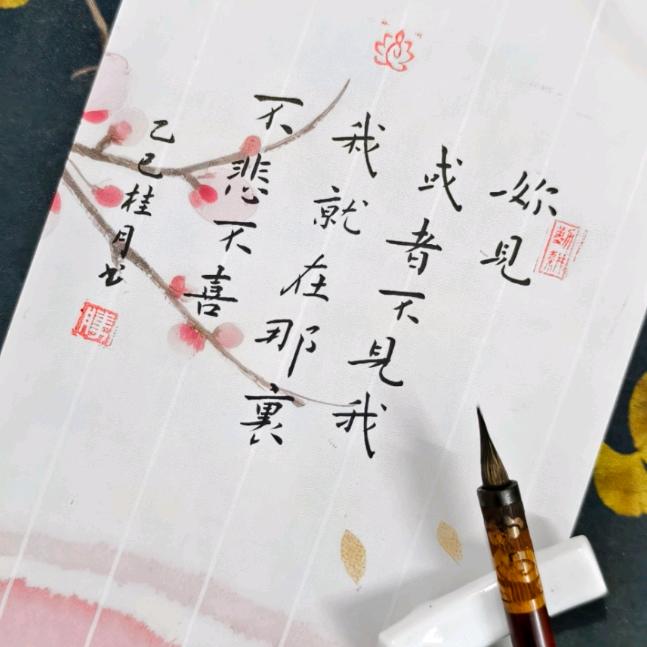 妳見
或者不見我
我就在那裏
不悲不喜
乙巳桂月书